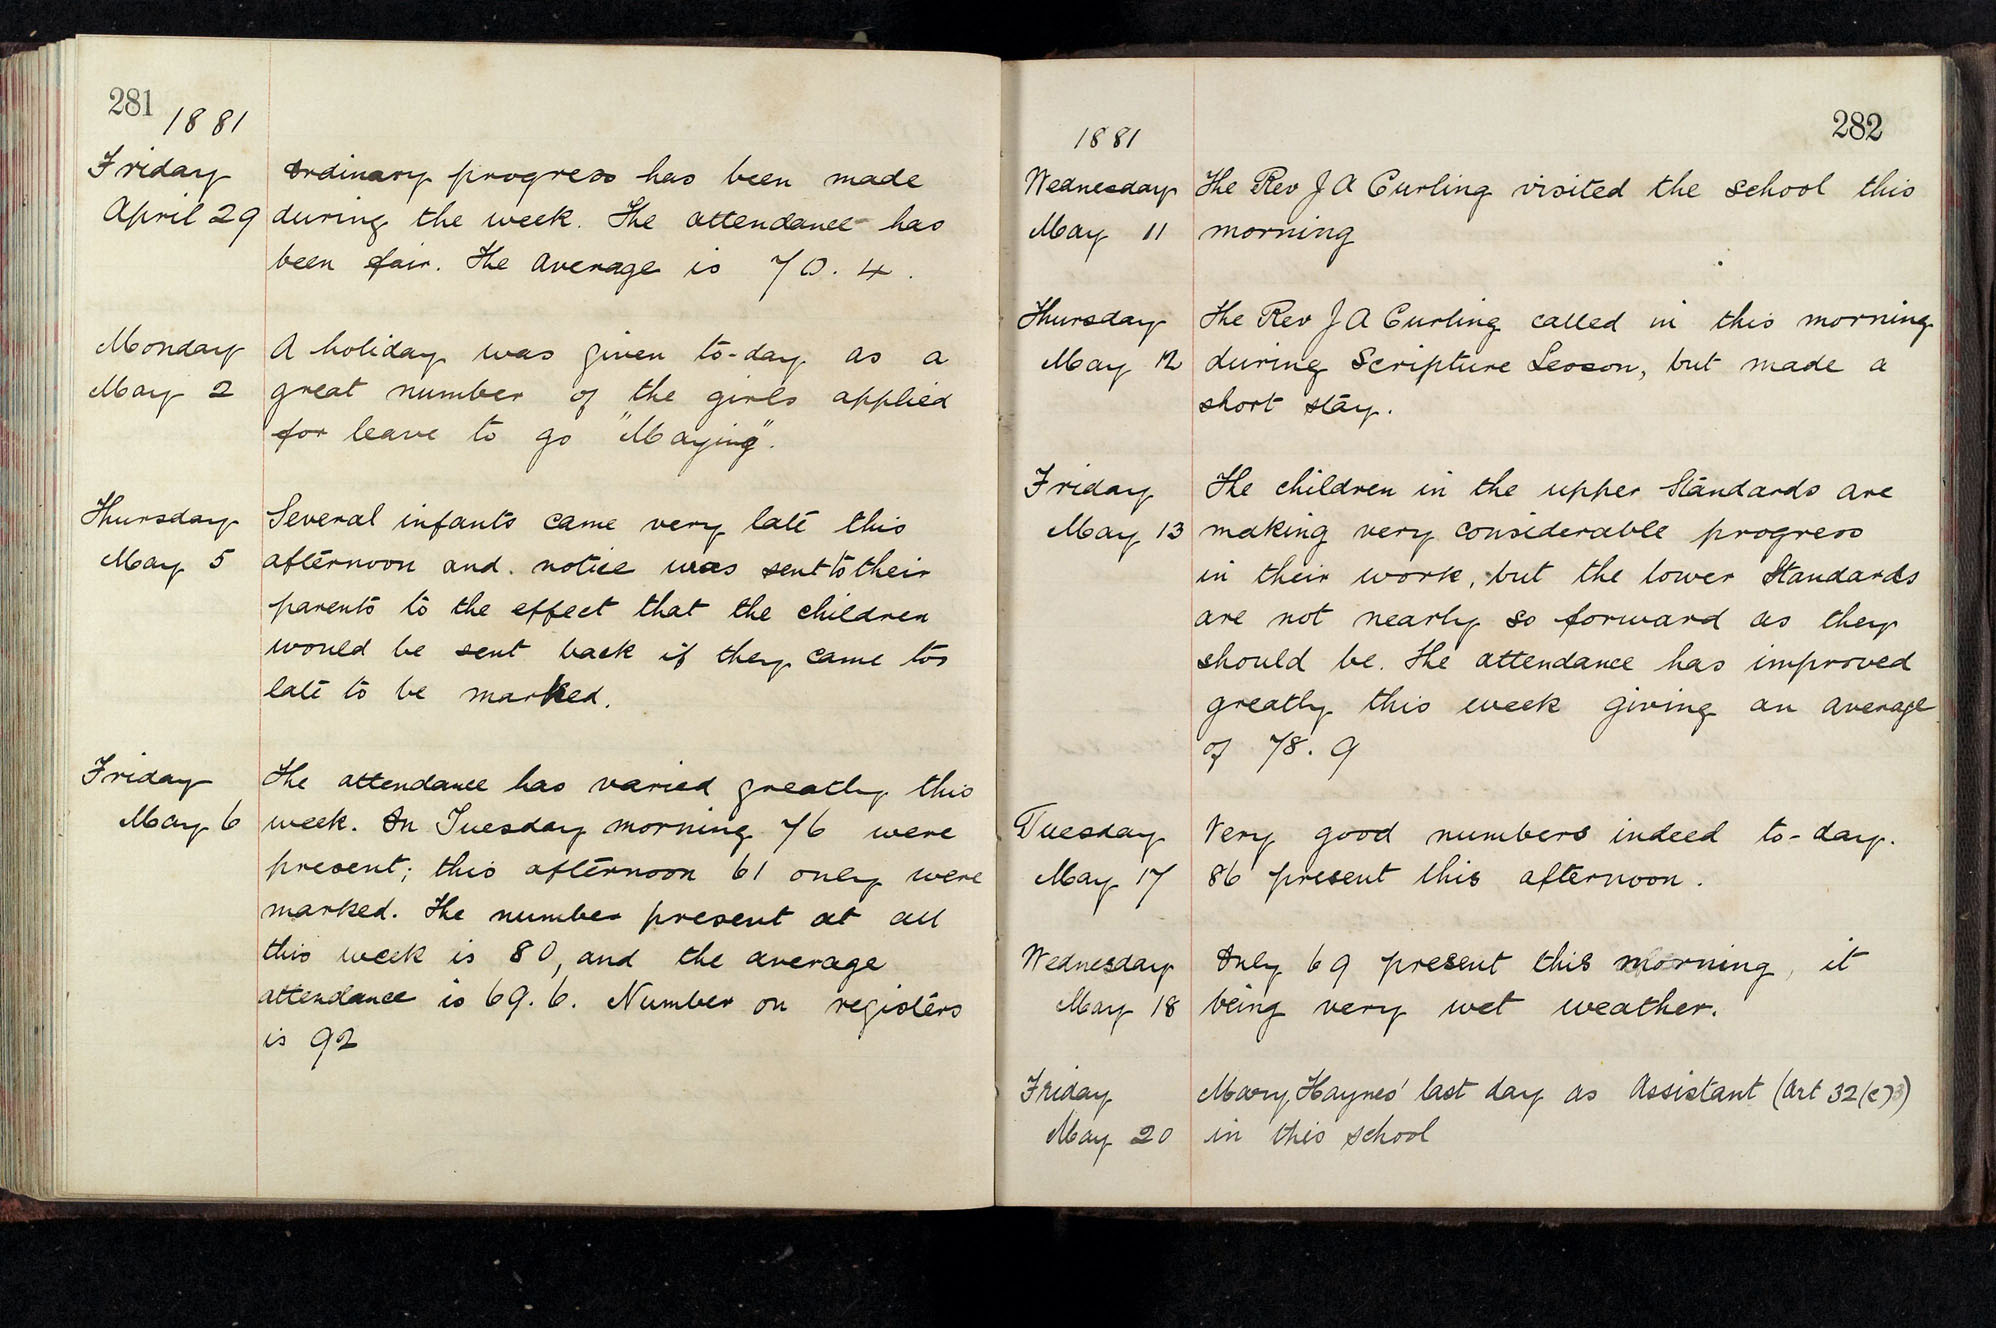 281
1881
Friday Ordinary progress has been made
April 29 during the week. The attendance has
been fair. The average is 70.4.
Monday A holiday was given to-day as a
May 2 great number of the girls applied
for leave to go "Maying".
Thursday Several infants came very late this
May 5 afternoon and notice was sent to their
parents to the effect that the children
would be sent back if they came too
late to be marked.
Friday The attendance has varied greatly this
May 6 week. On Tuesday morning 76 were
present; this afternoon 61 only were
marked. The number present at all
this week is 80, and the average
attendance is 69.6. Number on registers
is 92
282
1881
Wednesday The Rev J A Curling visited the school this
May 11 morning
Thursday The Rev J A Curling called in this morning
May 12 during Scripture Lesson, but made a
short stay.
Friday The children in the upper Standards are
May 13 making very considerable progress
in their work, but the lower Standards
are not nearly so forward as they
should be. The attendance has improved
greatly this week giving an average
of 78.9
Tuesday Very good numbers indeed to-day.
May 17 86 present this afternoon.
Wednesday Only 69 present this morning, it
May 18 being very wet weather.
Friday Mary Haynes' last day as Assistant (Art 32(c)3)
May 20 in this school